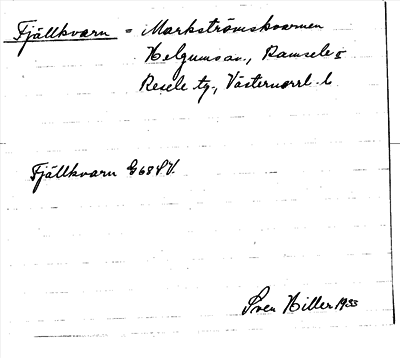 Fjällkvarn = Markströmskvarnen
Helgums sn., Ramsele &
Resele tg., Västernorrl. l.
Fjällkvarn G 68 SV.
Sven Hiller 1933